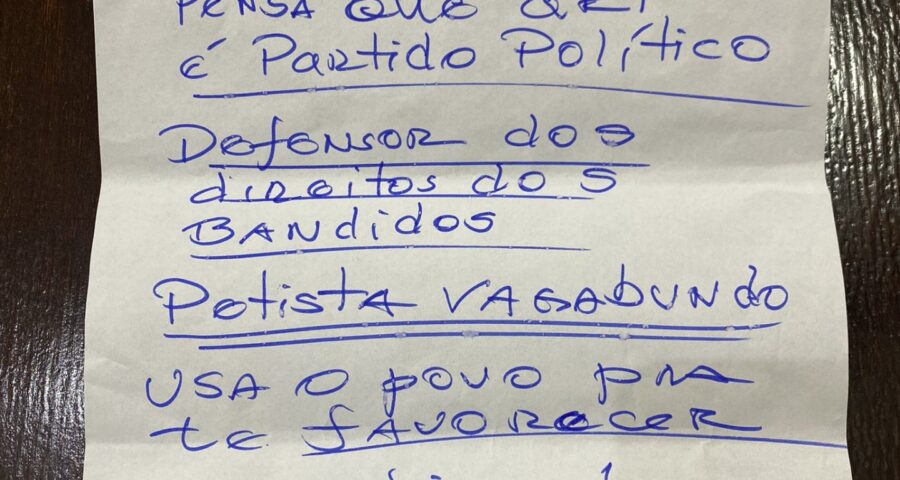 PENSA QUE
é Partido Político
Defensor dos
direitos dos
BANdidos
Petista VAGAbUNdo
USA O povo pRA
te fAVORecer